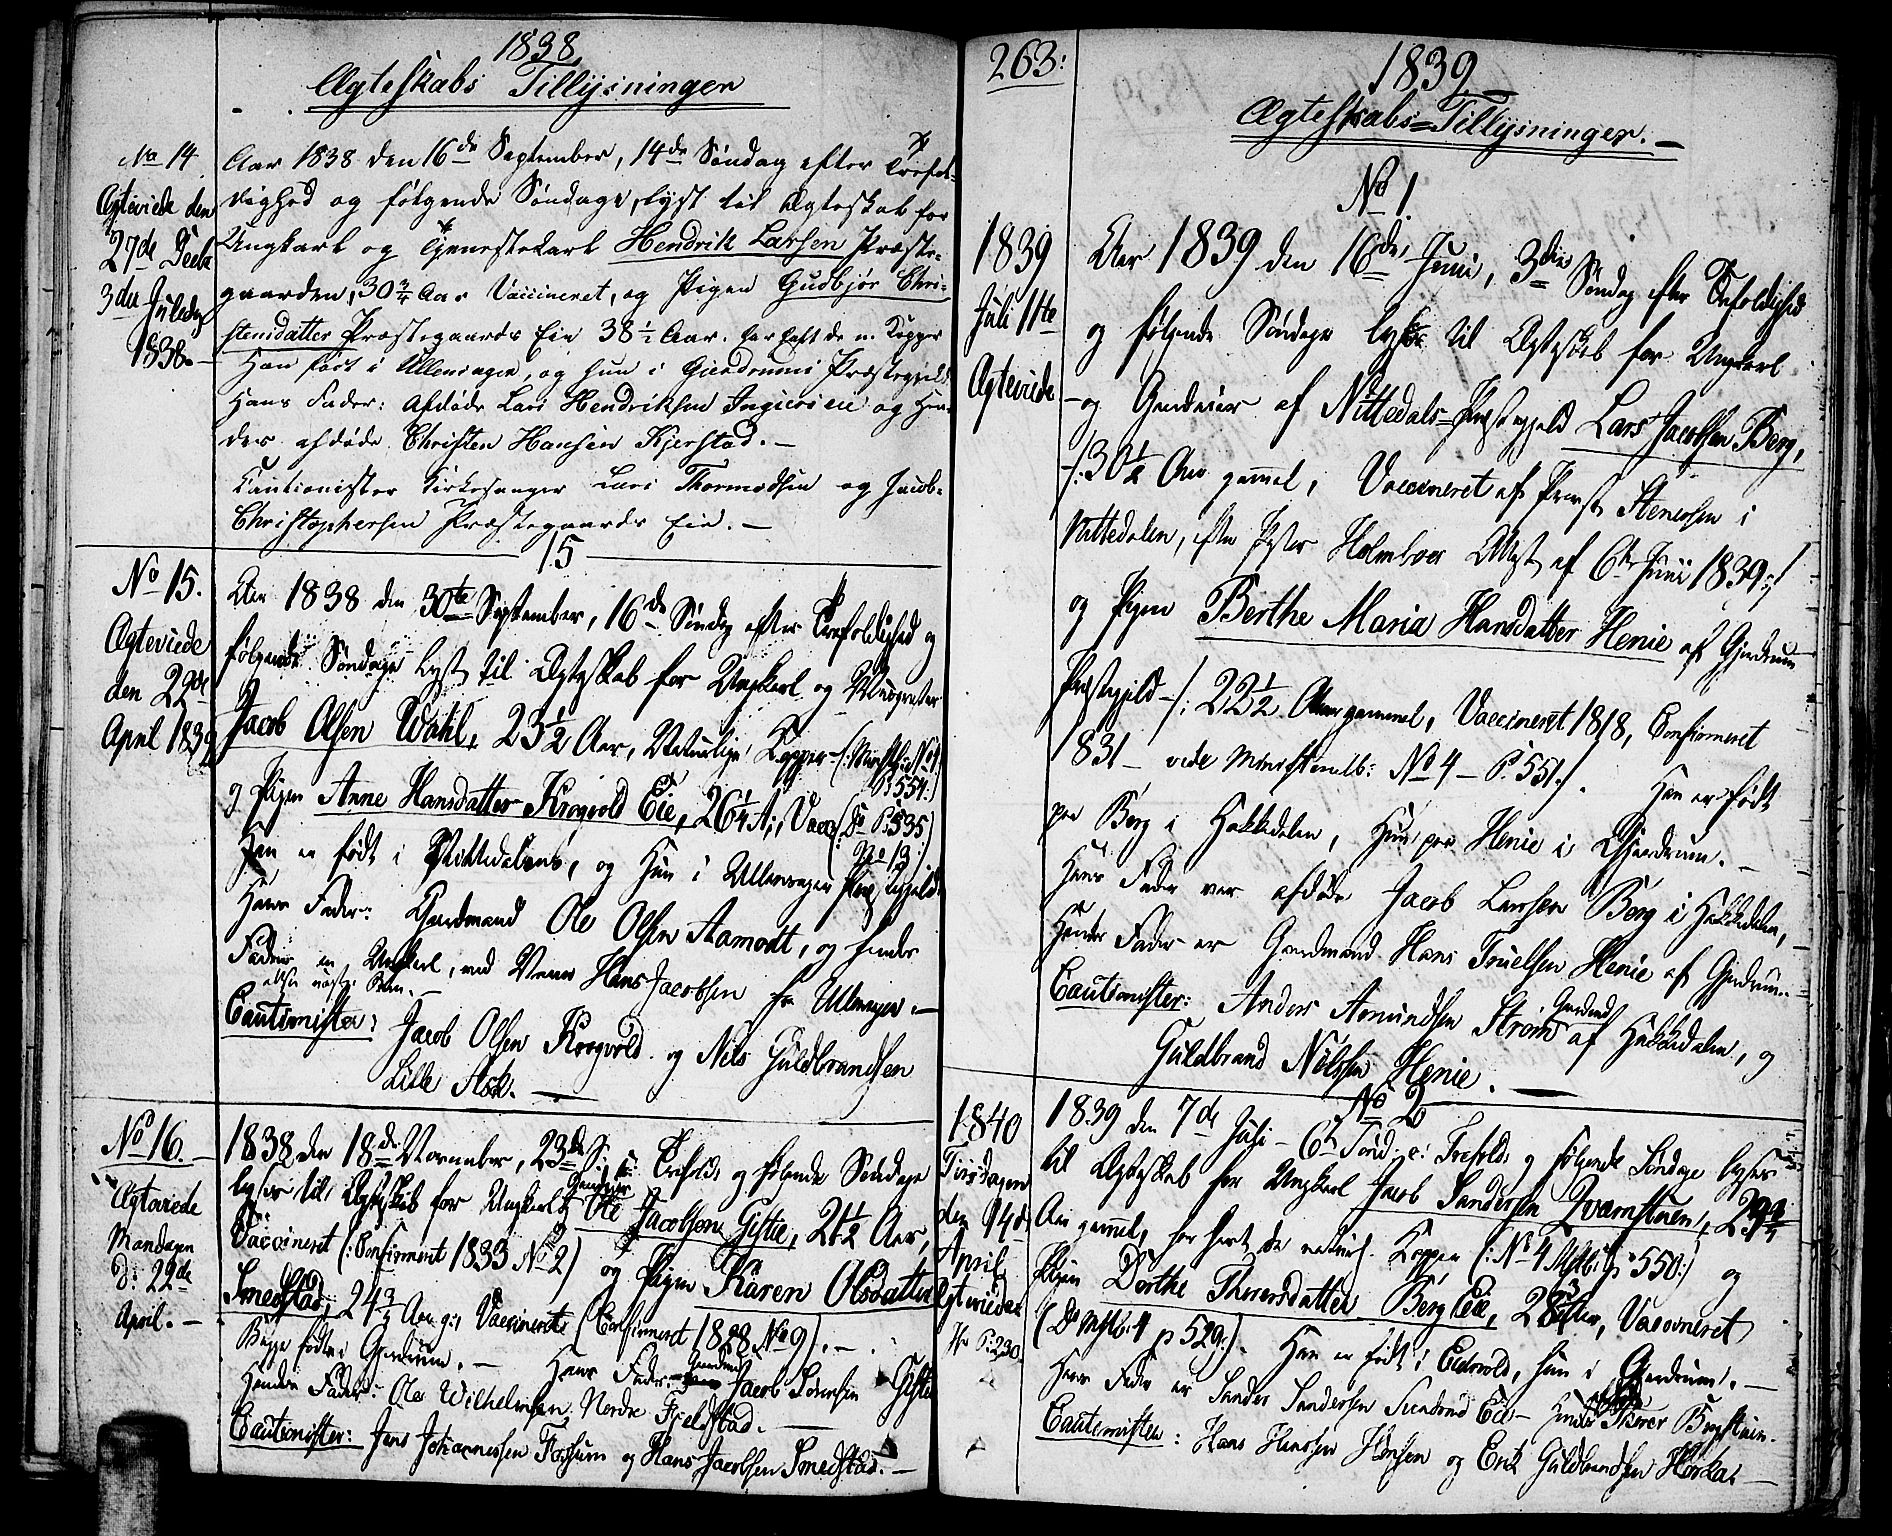 1838
Ægteskabs Tillysninger
No 14.
Ægteviede den
27de Decbr
3die Juledag
1838.
Aar 1838 den 16de September, 14de Søndag efter Trefol-
dighed og følgende Søndage, lyst til Ægteskab for
Ungkarl og Tjenestekarl Hendrik Larsen Præste-
gaarden, 30 3/4 Aar Vaccineret, og Pigen Gudbjør Chri-
stensdatter Præstegaards Eie 38 1/2 Aar. har havt de n. Kopper
Han født i Ullensager, og hun i Gjerdrums Præstegjeld
Hans Fader: Afdøde Lars Hendriksen og Hen-
des afdøde Christen Hansen Kjerstad. —
Cautionister Kirkesanger Lars Thormodsen og Jacob
Christophersen Præstegaards Eie. —
15
No 15.
Ægteviede
den 22de
April 1839
Aar 1838 den 30te September, 16de Søndag efter Trefoldighed og
følgende Søndage lyst til Ægteskab for Ungkarl og
Jacob Olsen Wahl, 23 1/2 Aar, Naturlige Kopper (: No 4
P. 554:)
og Pigen Anne Hansdatter Krogvold Eie, 26 1/4 A:, Vacc (: Do P. 535)
No 13:)
Han er født i Nittedalens, og Hun i Ullensager Præstegjeld
Hans Fader: Gaardmand Ole Olsen Aamodt, og hendes
Fader en Ungkarl, ved Navn Hans Jacobsen fra Ullensager. —
Cautionister: Jacob Olsen Krogvold og Nils Guldbrandsen
Lille Ask. —
No 16. —
Ægteviede
Mandagen
d: 22de
April. —
1838 den 18de November, 23de S: e: Trefold: og følgende Søndage
lyses til Ægteskab for Ungkarl Gaardeier Ole Jacobsen Gistie, 21 1/2 Aar,
Vaccineret (: Confirmeret 1833 No 2) og Pigen Karen Olsdatter
Smedstad, 24 3/4 Aar g:, Vaccineret (Confirmeret 1828 No 9). —
Begge fødte i Gjerdrum. — Hans Fader: Gaardmand Jacob Sørensen Gistie
Hendes Fader: Ole Wilhelmsen Nordre Fjeldstad. —
Cautionister: Jens Johannessen Fossum og Hans Jacobsen Smedstad. —
263:
1839
Ægteskabs=Tillysninger. —
No 1.
1839
Juli 11te
Ægteviede
Aar 1839 den 16de Juni, 3die Søndag efter Trefoldighed
og følgende Søndage lyst til Ægteskab for Ungkarl
og Gaardeier af Nittedals=Præstegjeld Lars Jacobsen Berg,
/: 30 1/2 Aar gammel, Vaccineret af Præst Stenersen i
Nittedalen, efter Pastor Holmboes Attest af 6te Junii 1839 :/
og Pigen Berthe Maria Hansdatter Henie af Gjerdrum
Præstegjeld /: 22 1/2 Aar gammel, Vaccineret 1818, Confirmeret
1831 — vide Ministerialb: No 4 — P. 551 :/. Han er født
paa Berg i Hakkedalen, Hun paa Henie i Gjerdrum. —
Hans Fader var afdøde Jacob Larssen Berg i Hakkedalen,
Hendes Fader er Gaardmand Hans Truelsen Henie af Gjerdrum. —
Cautionister: Anders Amundsen Strøm Gaardmand af Hakkedalen, og
Guldbrand Nilssen Henie. —
No 2
1840
Tirsdagen
den 14de
April
Ægteviede
P: 230.
1839 den 7de Juli — 6te Sønd: e: Trefold: og følgende Søndage lyses
til Ægteskab for Ungkarl Jacob Sandersen Qvernstuen, 29 3/4
Aar gammel, har havt de naturl: Kopper (: No 4 Mstb: P 550:) og
Pigen Dorthe Thorersdatter Berg Eie, 28 Aar, Vaccineret
(Do Mstb: 4 p 529:). Han er født i Eidsvold, hun i Gjerdrum. —
Hans Fader er Sander Sandersen Eie — Hendes Thorer
Cautionister: Hans Hansen og Erik Guldbrandsen —